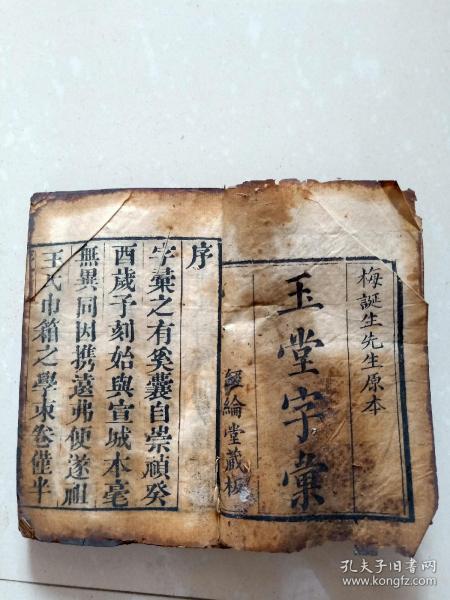 梅誕生先生原本
玉堂字彙
經綸堂藏板
序
字彙之有奚囊自崇禎癸
酉歲予刻始與宣城本毫
無異同因携遠弗便遂祖
王氏巾箱之學束卷僅半
孔夫子旧书网
www.kongfz.com